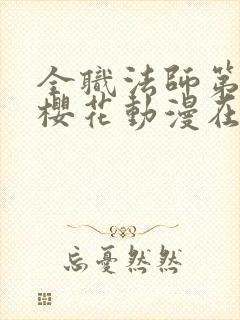 全職法師第
櫻花動漫在
忘憂然然